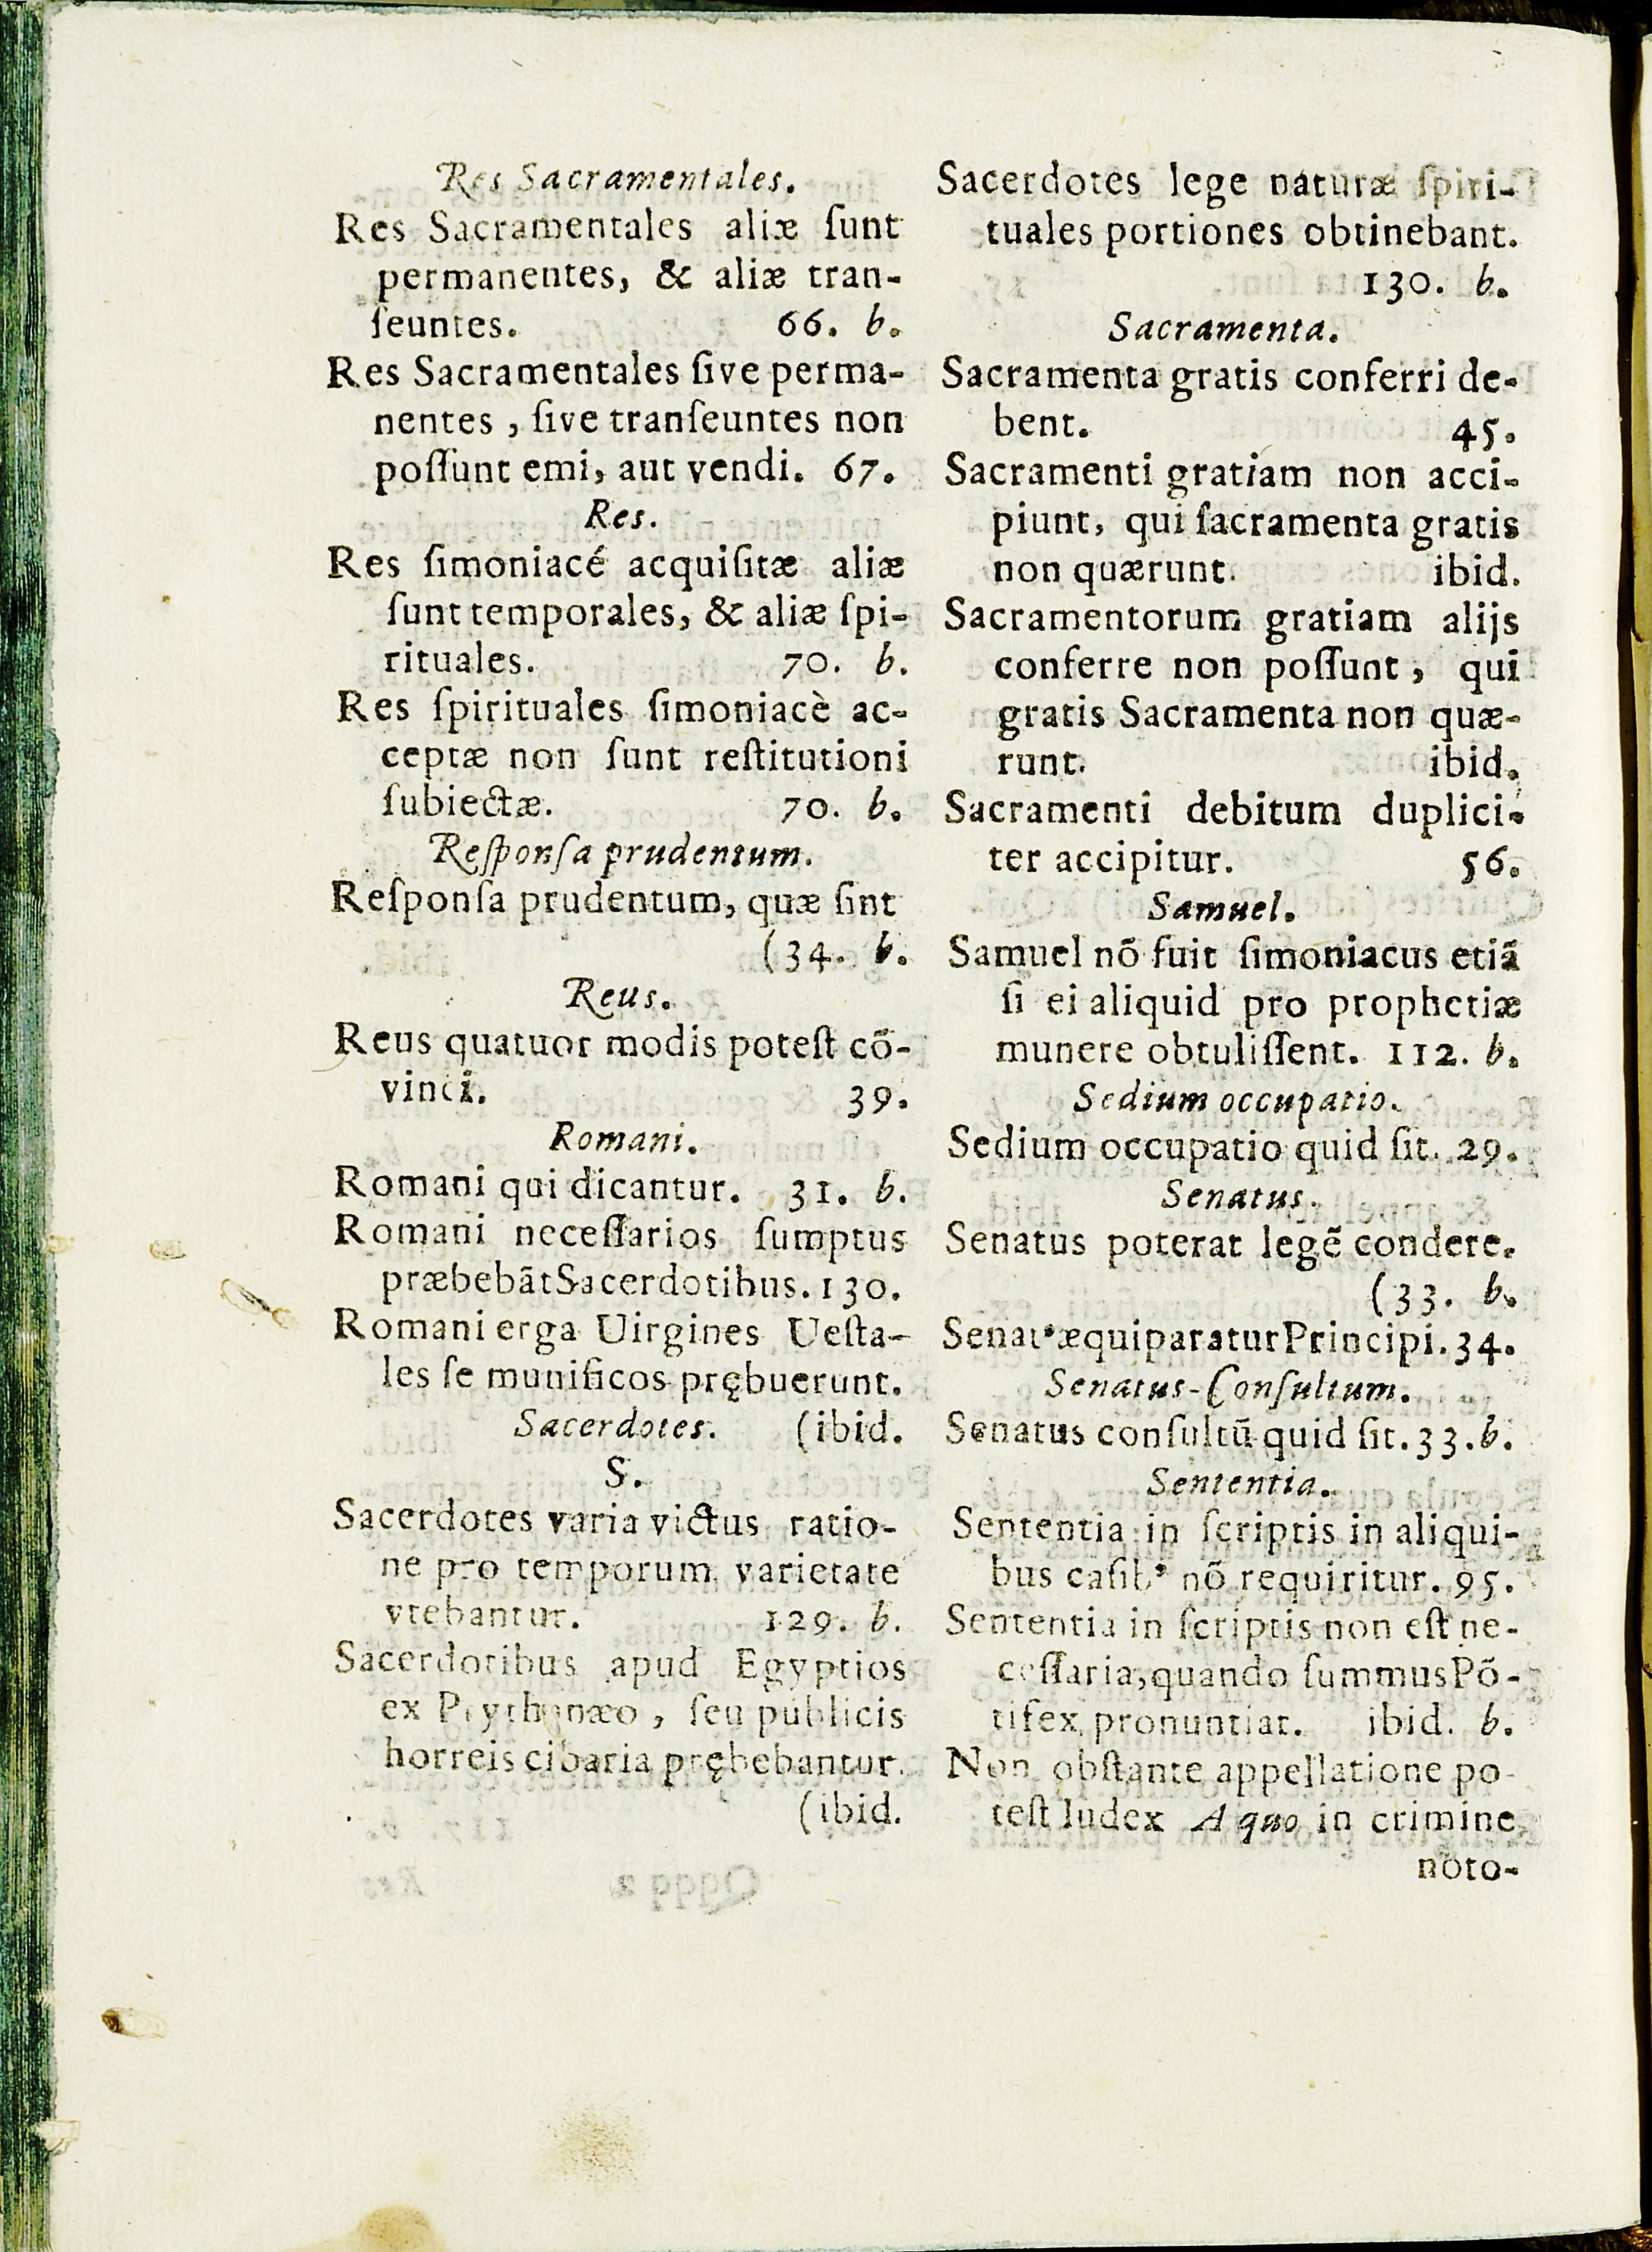 Res Sacramentales.
Res Sacramentales aliæ ſunt
permanentes, & aliæ tran-
ſeuntes. 66. b.
Res Sacramentales ſive perma-
nentes , ſive tranſeuntes non
poſſunt emi, aut vendi. 67.
Res.
Res ſimoniacé acquiſitæ aliæ
ſunt temporales, & aliæ ſpi-
rituales. 70. b.
Res ſpirituales ſimoniacè ac-
ceptæ non ſunt reſtitutioni
ſubiectæ. 70. b.
Reſponſa prudentum.
Reſponſa prudentum, quæ ſint
(34. b.
Reus.
Reus quatuor modis poteſt cõ-
vinci. 39.
Romani.
Romani qui dicantur. 31. b.
Romani neceſſarios ſumptus
præbebãtSacerdotibus. 130.
Romani erga Uirgines Ueſta-
les ſe munificos prębuerunt.
Sacerdotes. (ibid.
S.
Sacerdotes varia victus ratio-
ne pro temporum varietate
vtebantur. 129. b.
Sacerdotibus apud Egyptios
ex Prythanæo , ſeu publicis
horreis cibaria prębebantur.
(ibid.
Sacerdotes lege naturæ ſpiri-
tuales portiones obtinebant.
130. b.
Sacramenta.
Sacramenta gratis conferri de-
bent. 45.
Sacramenti gratiam non acci-
piunt, qui ſacramenta gratis
non quærunt. ibid.
Sacramentorum gratiam alijs
conferre non poſſunt , qui
gratis Sacramenta non quæ-
runt. ibid.
Sacramenti debitum duplici-
ter accipitur. 56.
Samuel.
Samuel nõ fuit ſimoniacus etiã
ſi ei aliquid pro prophetiæ
munere obtuliſſent. 112. b.
Sedium occupatio.
Sedium occupatio quid ſit. 29.
Senatus.
Senatus poterat legẽ condere.
(33. b.
Senatꝰ æquiparaturPrincipi. 34.
Senatus-Conſultum.
Senatus conſultũ quid ſit. 33. b.
Sententia.
Sententia in ſcriptis in aliqui-
bus caſibꝰ nõ requiritur. 95.
Sententia in ſcriptis non eſt ne-
ceſſaria, quando ſummusPõ-
tifex pronuntiat. ibid. b.
Non obſtante appellatione po-
teſt Iudex A quo in crimine
noto-